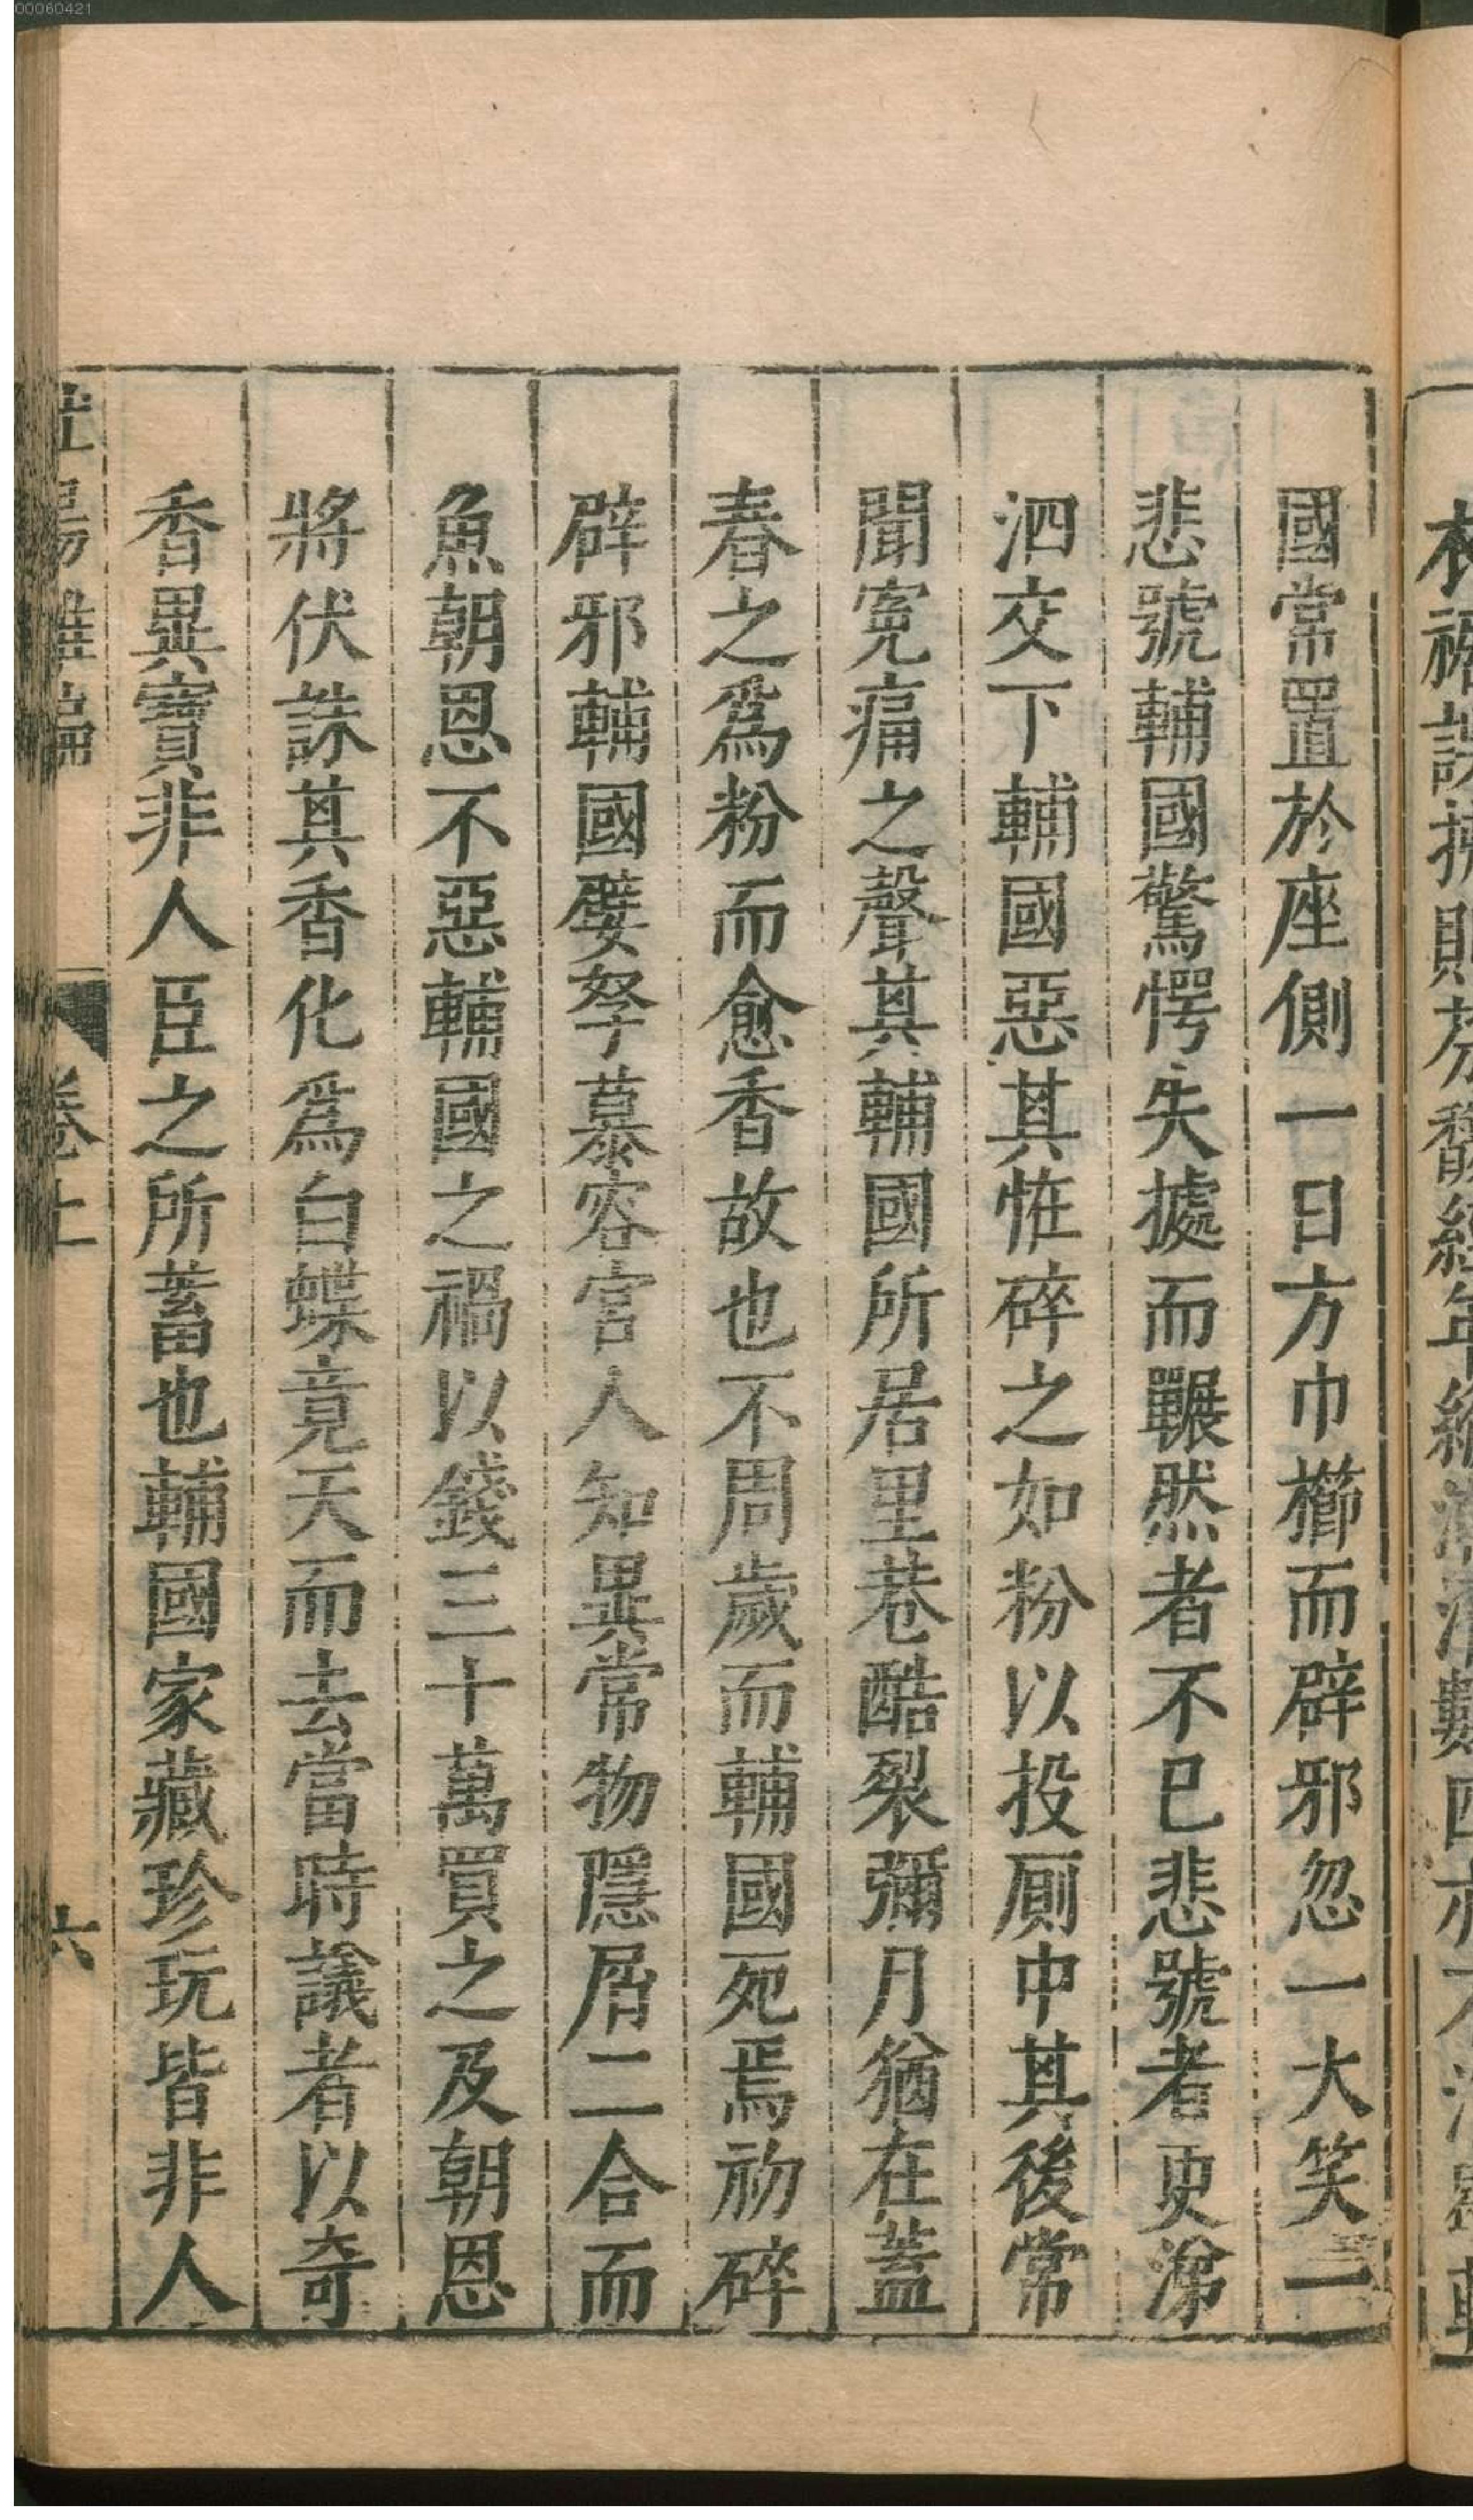 00060421
國常置於座側一日方巾櫛而辟邪忽一大笑一
悲號輔國驚愕失據而囅然者不已悲號者更涕
泗交下輔國惡其恠碎之如粉以投厠中其後常
聞寃痛之聲其輔國所居里巷酷裂彌月猶在蓋
舂之爲粉而愈香故也不周歲而輔國死焉初碎
辟邪輔國嬖孥慕容宫人知異常物隱屑二合而
魚朝恩不惡輔國之禍以錢三十萬買之及朝恩
將伏誅其香化爲白蝶竟天而去當時議者以奇
香異寶非人臣之所蓄也輔國家藏珍玩皆非人
卷上
六